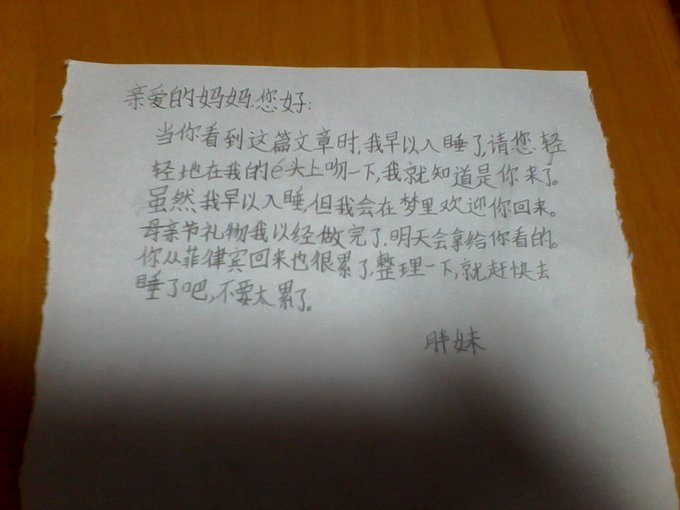 亲爱的妈妈,您好:
当你看到这篇文章时,我早以入睡了,请您轻
轻地在我的é头上吻一下,我就知道是你来了。
虽然我早以入睡,但我会在梦里欢迎你回来。
母亲节礼物我以经做完了,明天会拿给你看的。
你从菲律宾回来也很累了,整理一下,就赶快去
睡了吧,不要太累了。
胖妹